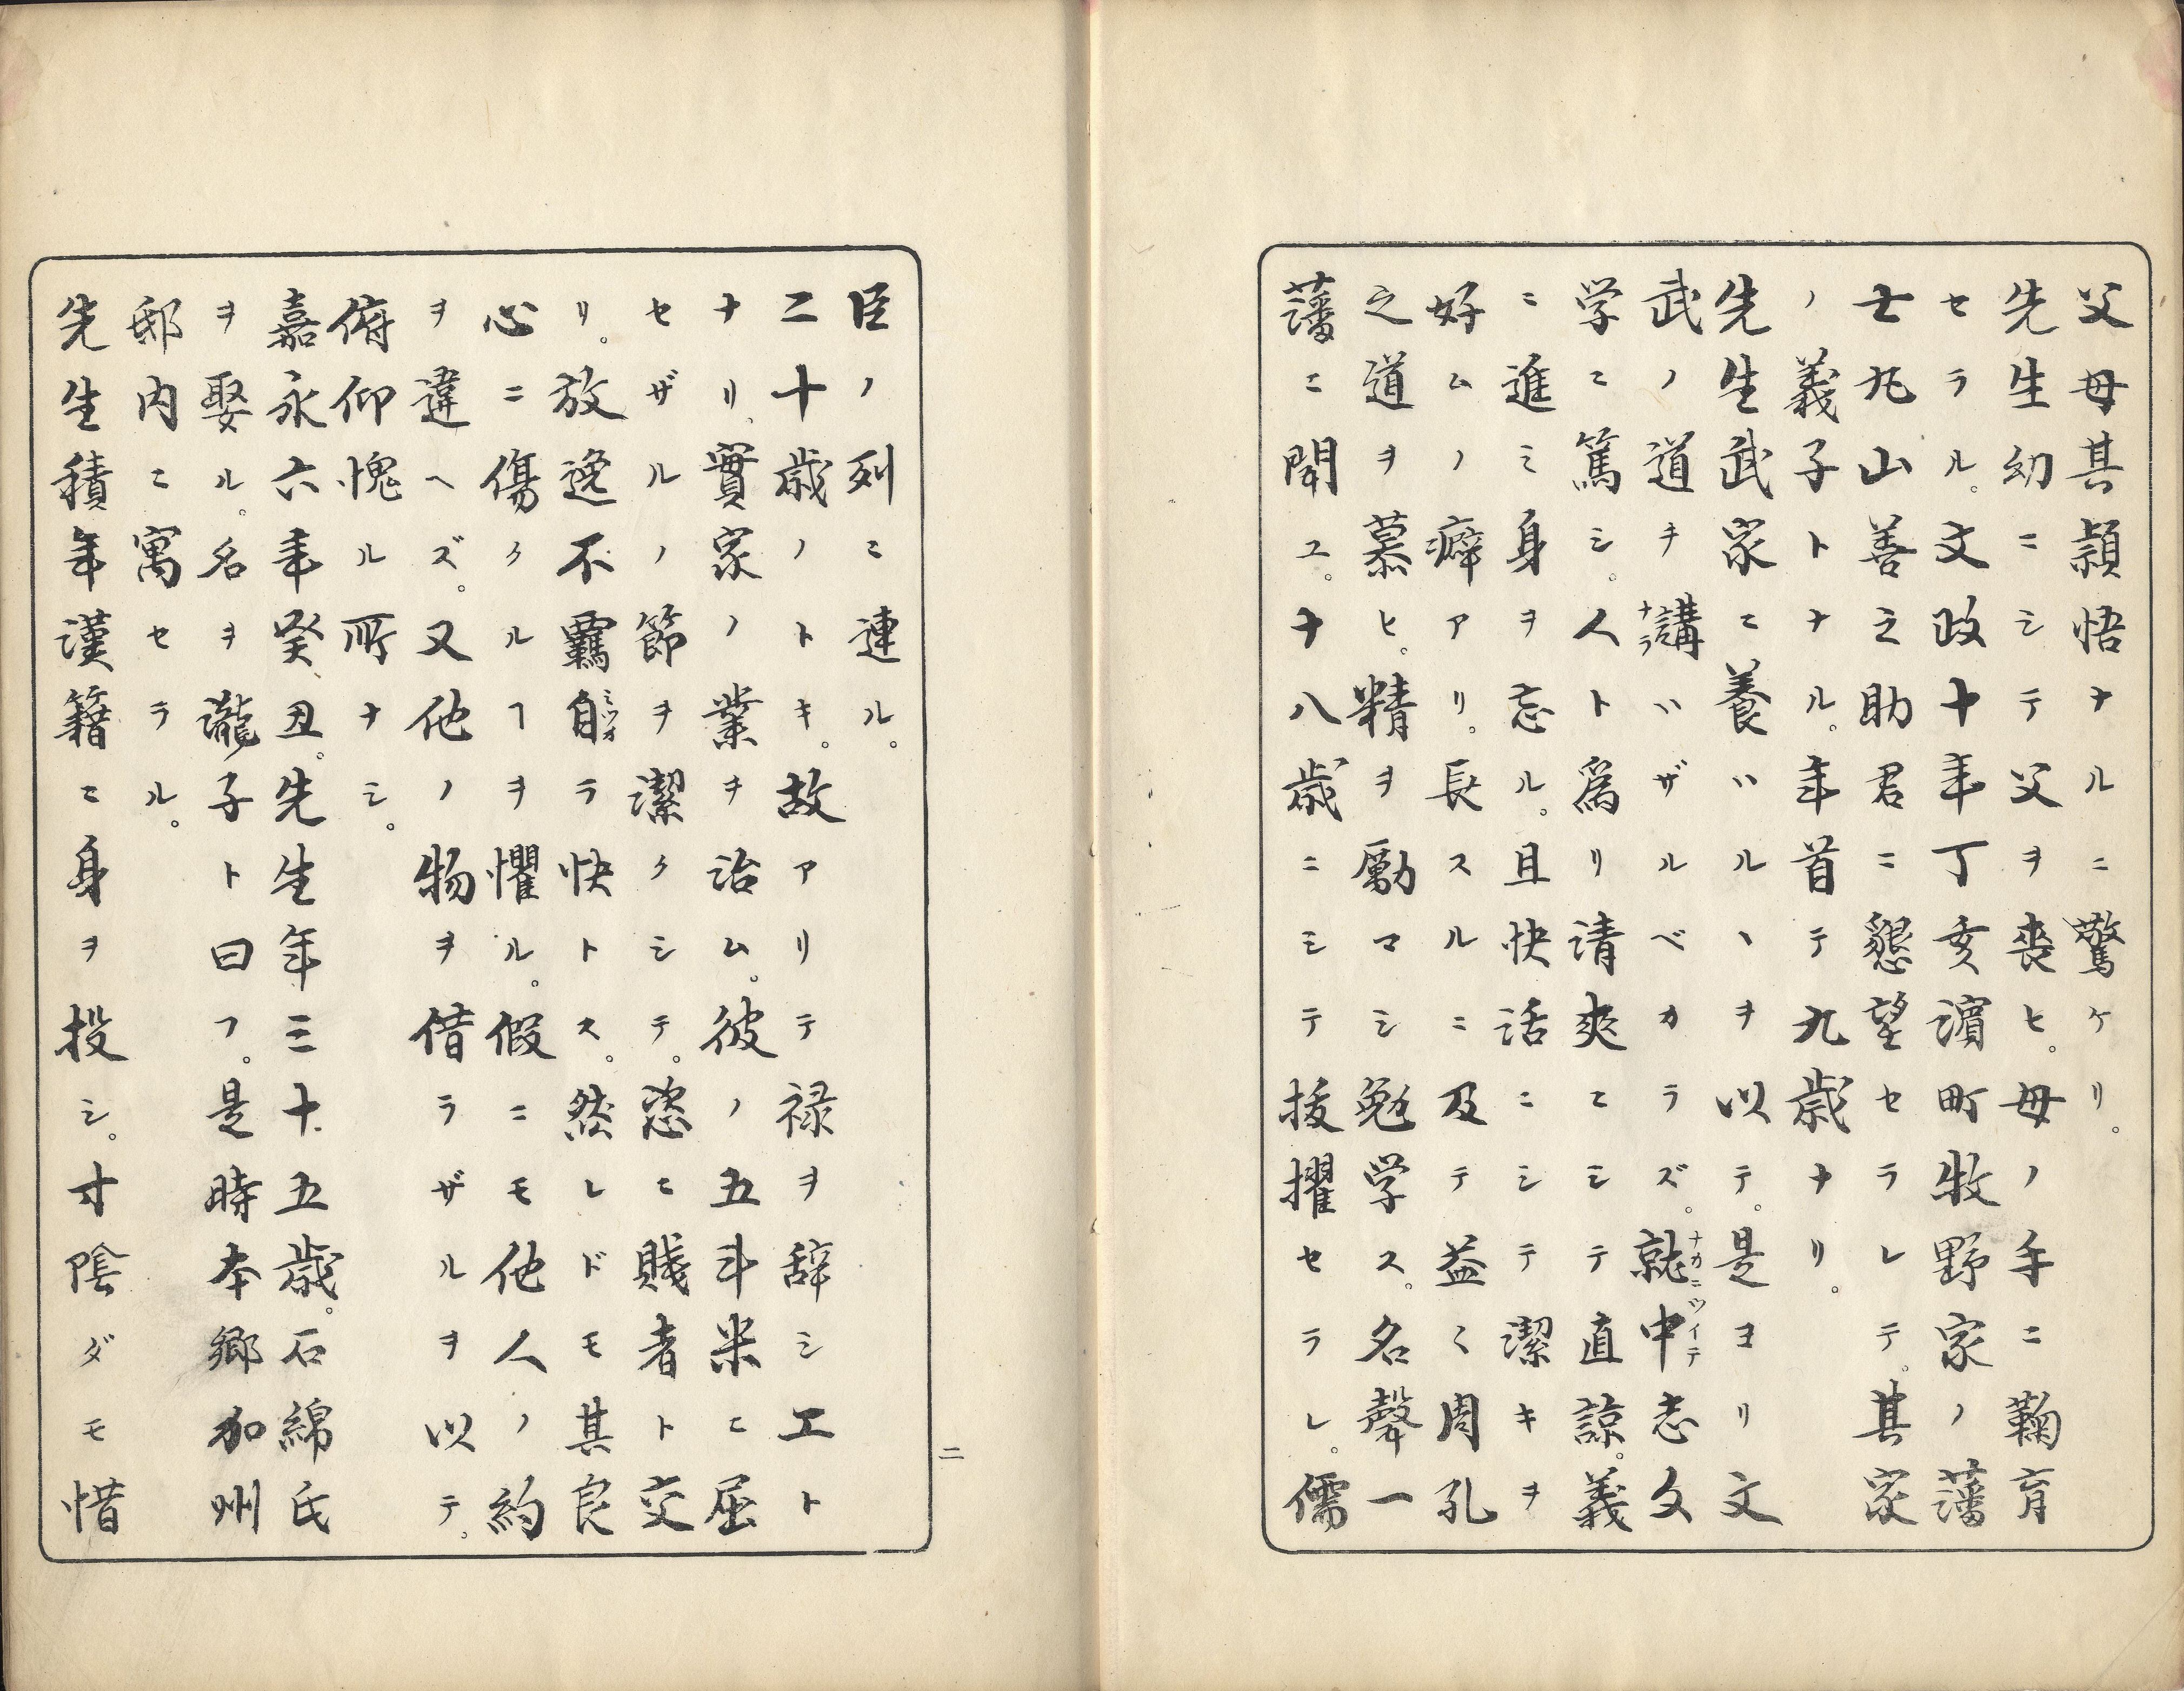 父母其頴悟ナルニ驚ケリ。
先生幼ニシテ父ヲ喪ヒ。母ノ手ニ鞠育
セラル。文政十年丁亥濵町牧野家ノ藩
士丸山善之助君ニ懇望セラレテ。其家
ノ義子トナル。年首テ九歳ナリ。
先生武家ニ養ハルヽヲ以テ。是ヨリ文
武ノ道ヲ講ハザルベカラズ。就中志文
学ニ篤シ。人ト爲リ清爽ニシテ直諒。義
ニ進ミ身ヲ忘ル。且快活ニシテ潔キヲ
好ムノ癖アリ。長スルニ及テ益〻周孔
之道ヲ慕ヒ。精ヲ勵マシ勉学ス。名聲一
藩ニ聞ユ。十八歳ニシテ抜擢セラレ。儒
臣ノ列ニ連ル。
二十歳ノトキ。故アリテ禄ヲ辞シ工ト
ナリ。實家ノ業ヲ治ム。彼ノ五斗米ニ屈
セザルノ節ヲ潔クシテ。恣ニ賎者ト交
リ。放逸不羈自ラ快トス。然レドモ其良
心ニ傷クルヿヲ懼ル。假ニモ他人ノ約
ヲ違ヘズ。又他ノ物ヲ借ラザルヲ以テ。
俯仰愧ル所ナシ。
嘉永六年癸丑。先生年三十五歳。石綿氏
ヲ娶ル。名ヲ瀧子ト曰フ。是時本郷加州
邸内ニ寓セラル。
先生積年漢籍ニ身ヲ投シ。寸陰ダモ惜
二